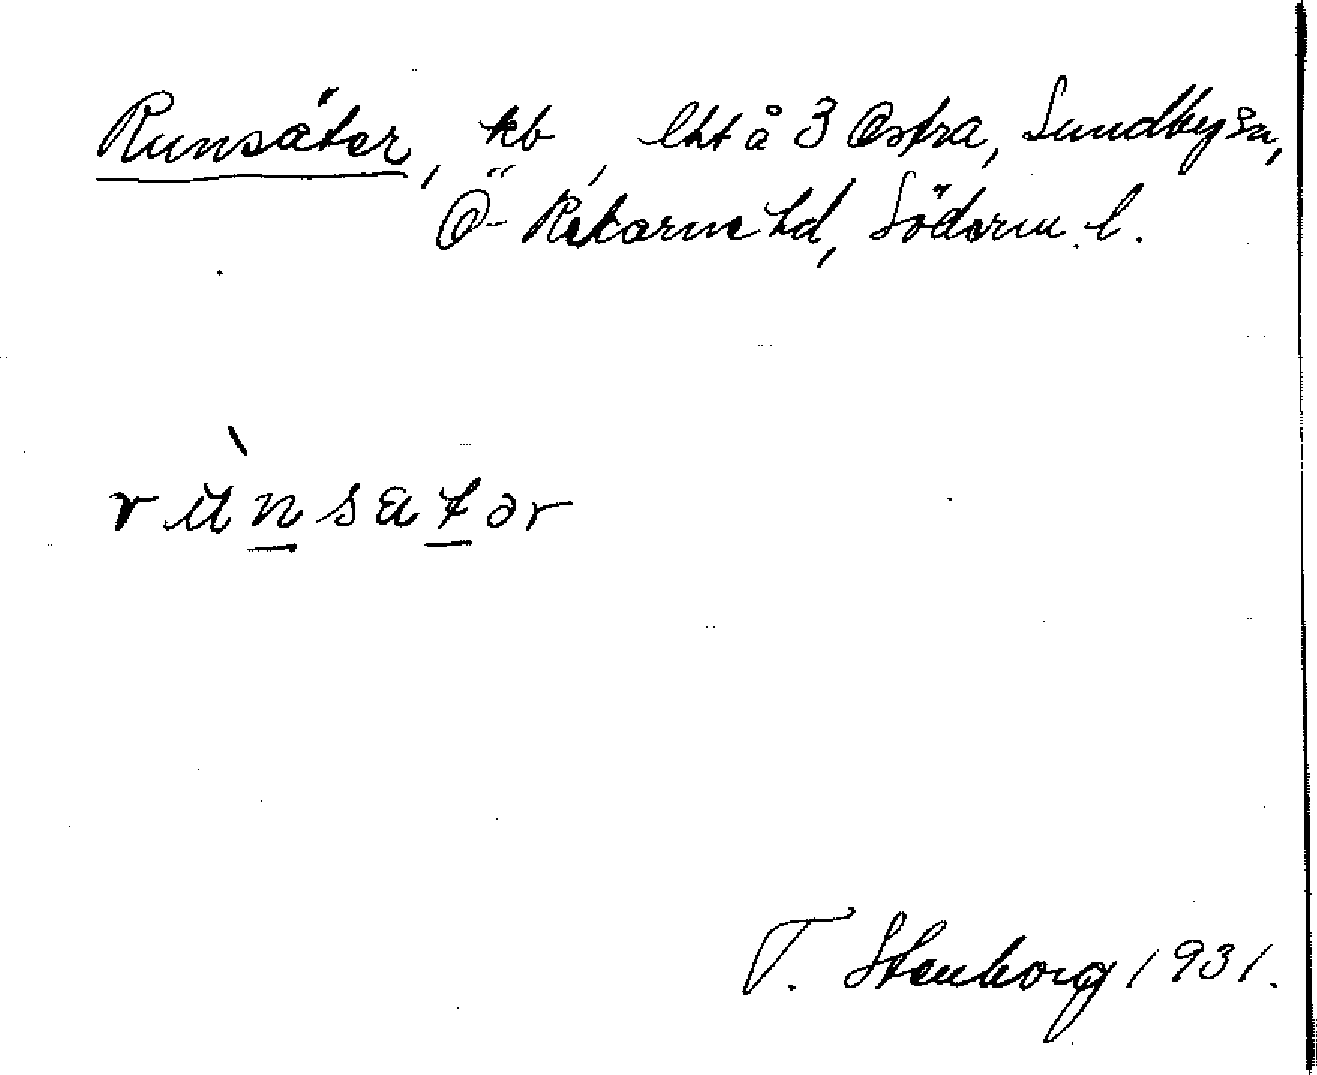 Runsäter, kb, lht å 3 Östra, Sundby sn,
Ö- Rekarne hd, Söderm. l.
rùnsætər
T. Stenborg 1931.